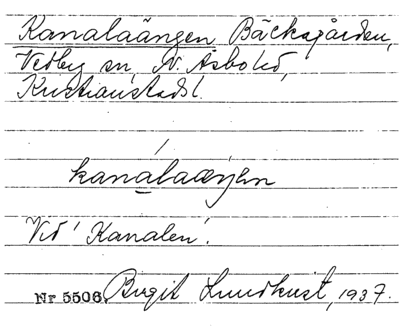 Kanalaängen Bäcksgården,
Vedby sn, N. Åsbo hd,
Kristianstads l.
kanálaæŋen
Vid 'Kanalen'.
Nr 5506. Birgit Lundkvist, 1937.